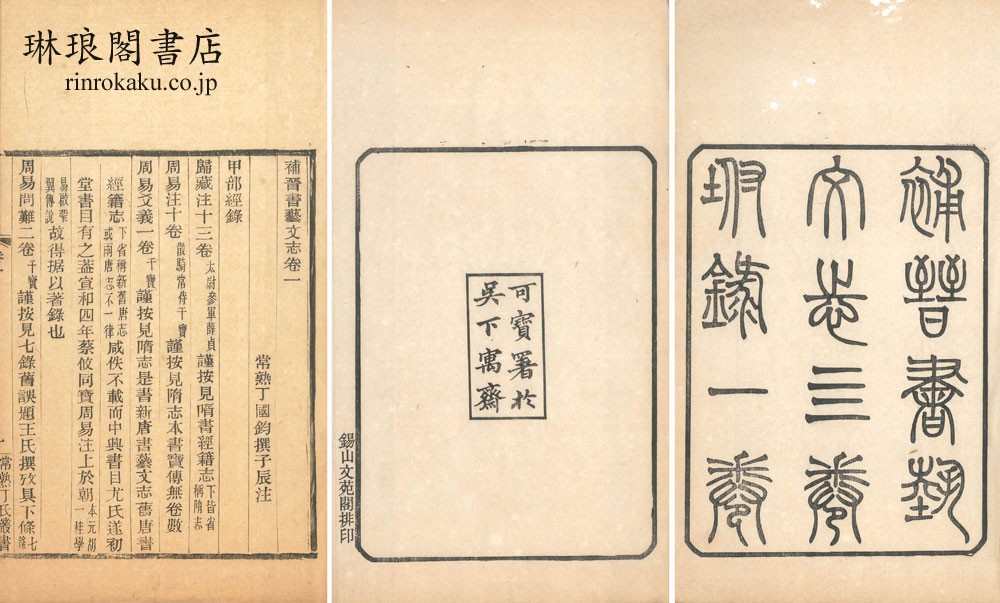 琳琅閣書店
rinrokaku.co.jp
補晉書藝
文志三卷
坿錄一卷
可寶署於
吳下寓齋
錫山文苑閣排印
補晉書藝文志卷一
常熟丁國鈞撰子辰注
甲部經錄
歸藏注十三卷太尉參軍薛貞謹按見隋書經籍志下皆省稱隋志
周易注十卷散騎常侍干寶謹按見隋志本書寶傳無卷數
周易爻義一卷干寶謹按見隋志是書新唐書藝文志舊唐書
經籍志下省稱新舊唐志或兩唐志不一律咸佚不載而中興書目尤氏遂初
堂書目有之葢宣和四年蔡攸同寶周易注上於朝本元胡一桂學
易啟蒙翼傳說故得据以著錄也
周易問難二卷干寶謹按見七錄舊誤題王氏撰攷具下條七錄
一 常熟丁氏叢書